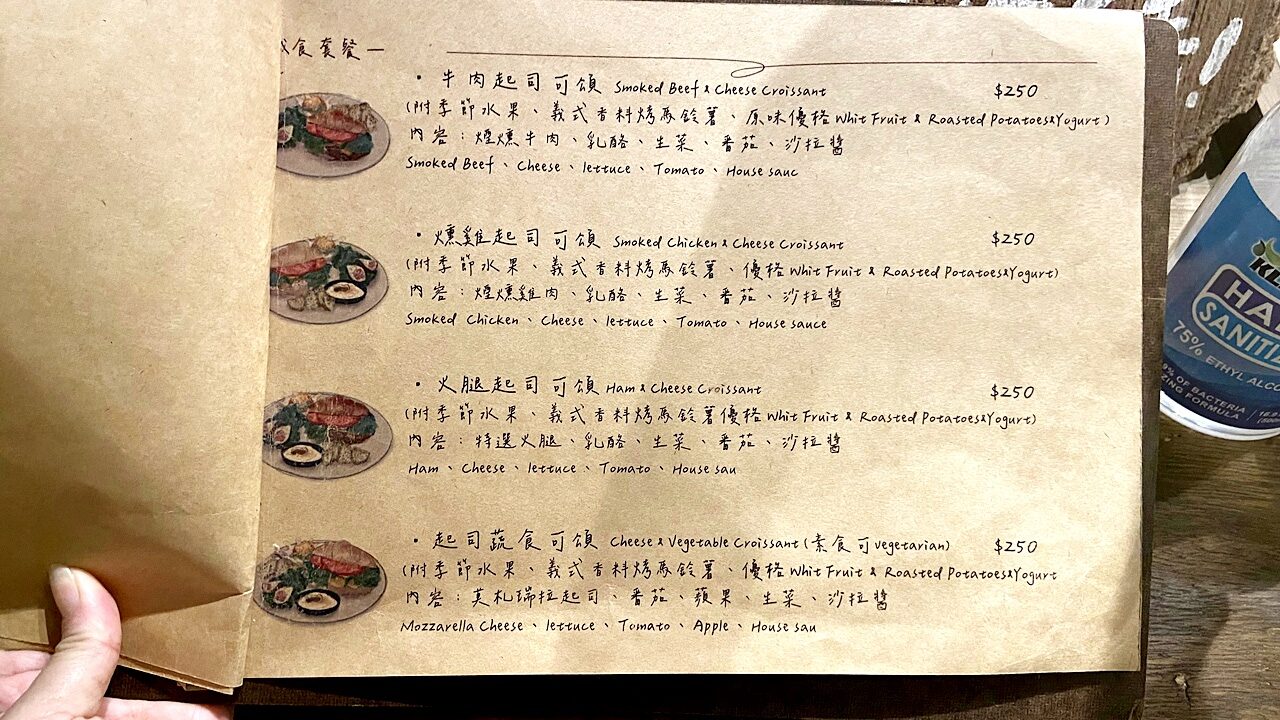 食套餐一
• 牛肉起司可頌 Smoked Beef & Cheese Croissant $250
(附季節水果、義式香料烤馬鈴薯、原味優格 Whit Fruit & Roasted Potatoes&Yogurt)
內容：煙燻牛肉、乳酪、生菜、番茄、沙拉醬
Smoked Beef、Cheese、lettuce、Tomato、House sauc
• 燻雞起司可頌 Smoked Chicken & Cheese Croissant $250
(附季節水果、義式香料烤馬鈴薯、優格 Whit Fruit & Roasted Potatoes&Yogurt)
內容：煙燻雞肉、乳酪、生菜、番茄、沙拉醬
Smoked Chicken、Cheese、lettuce、Tomato、House sauce
• 火腿起司可頌 Ham & Cheese Croissant $250
(附季節水果、義式香料烤馬鈴薯優格 Whit Fruit & Roasted Potatoes&Yogurt)
內容：特選火腿、乳酪、生菜、番茄、沙拉醬
Ham、Cheese、lettuce、Tomato、House sau
• 起司蔬食可頌 Cheese & Vegetable Croissant (素食可vegetarian) $250
(附季節水果、義式香料烤馬鈴薯、優格 Whit Fruit & Roasted Potatoes&Yogurt
內容：莫札瑞拉起司、番茄、蘋果、生菜、沙拉醬
Mozzarella Cheese、lettuce、Tomato、Apple、House sau
HA
SANITI
75% ETHYL ALCO
9% OF BACTERIA
ZING FORMULA